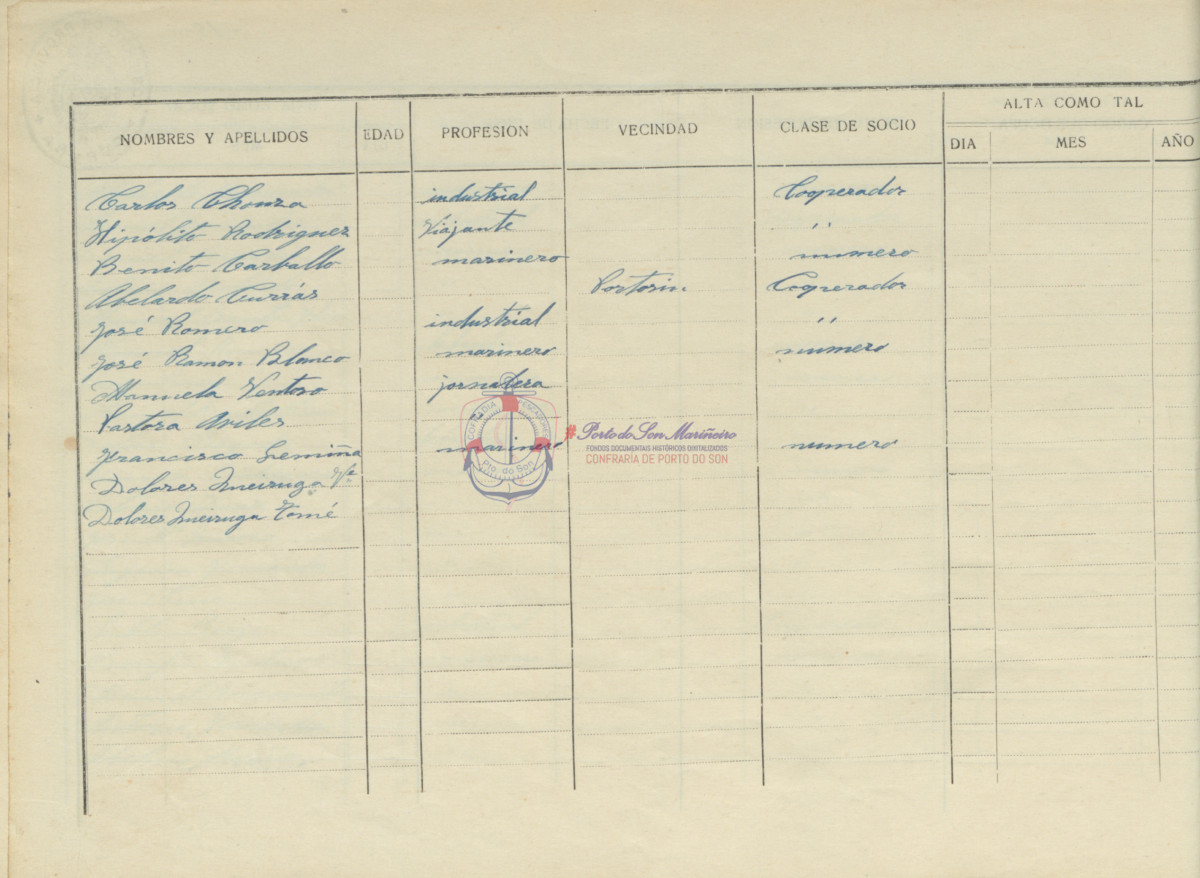 ALTA COMO TAL
NOMBRES Y APELLIDOS EDAD PROFESION VECINDAD CLASE DE SOCIO DIA MES AÑO
Carlos Chouza industrial Cooperador
Hipólito Rodriguez Viajante "
Benito Carballo marinero numero
Abelardo Currás Portosin Cooperador
José Romero industrial "
José Ramon Blanco marinero numero
Manuela Ventoso jornalera
Pastora Aviles
Francisco Lemiña marinero numero
Dolores Meiruga
Dolores Meiruga Tomé
COFRADIA PESCADORES
Pto. do Son
#Porto do Son Mariñeiro
FONDOS DOCUMENTAIS HISTÓRICOS DIGITALIZADOS
CONFRARÍA DE PORTO DO SON